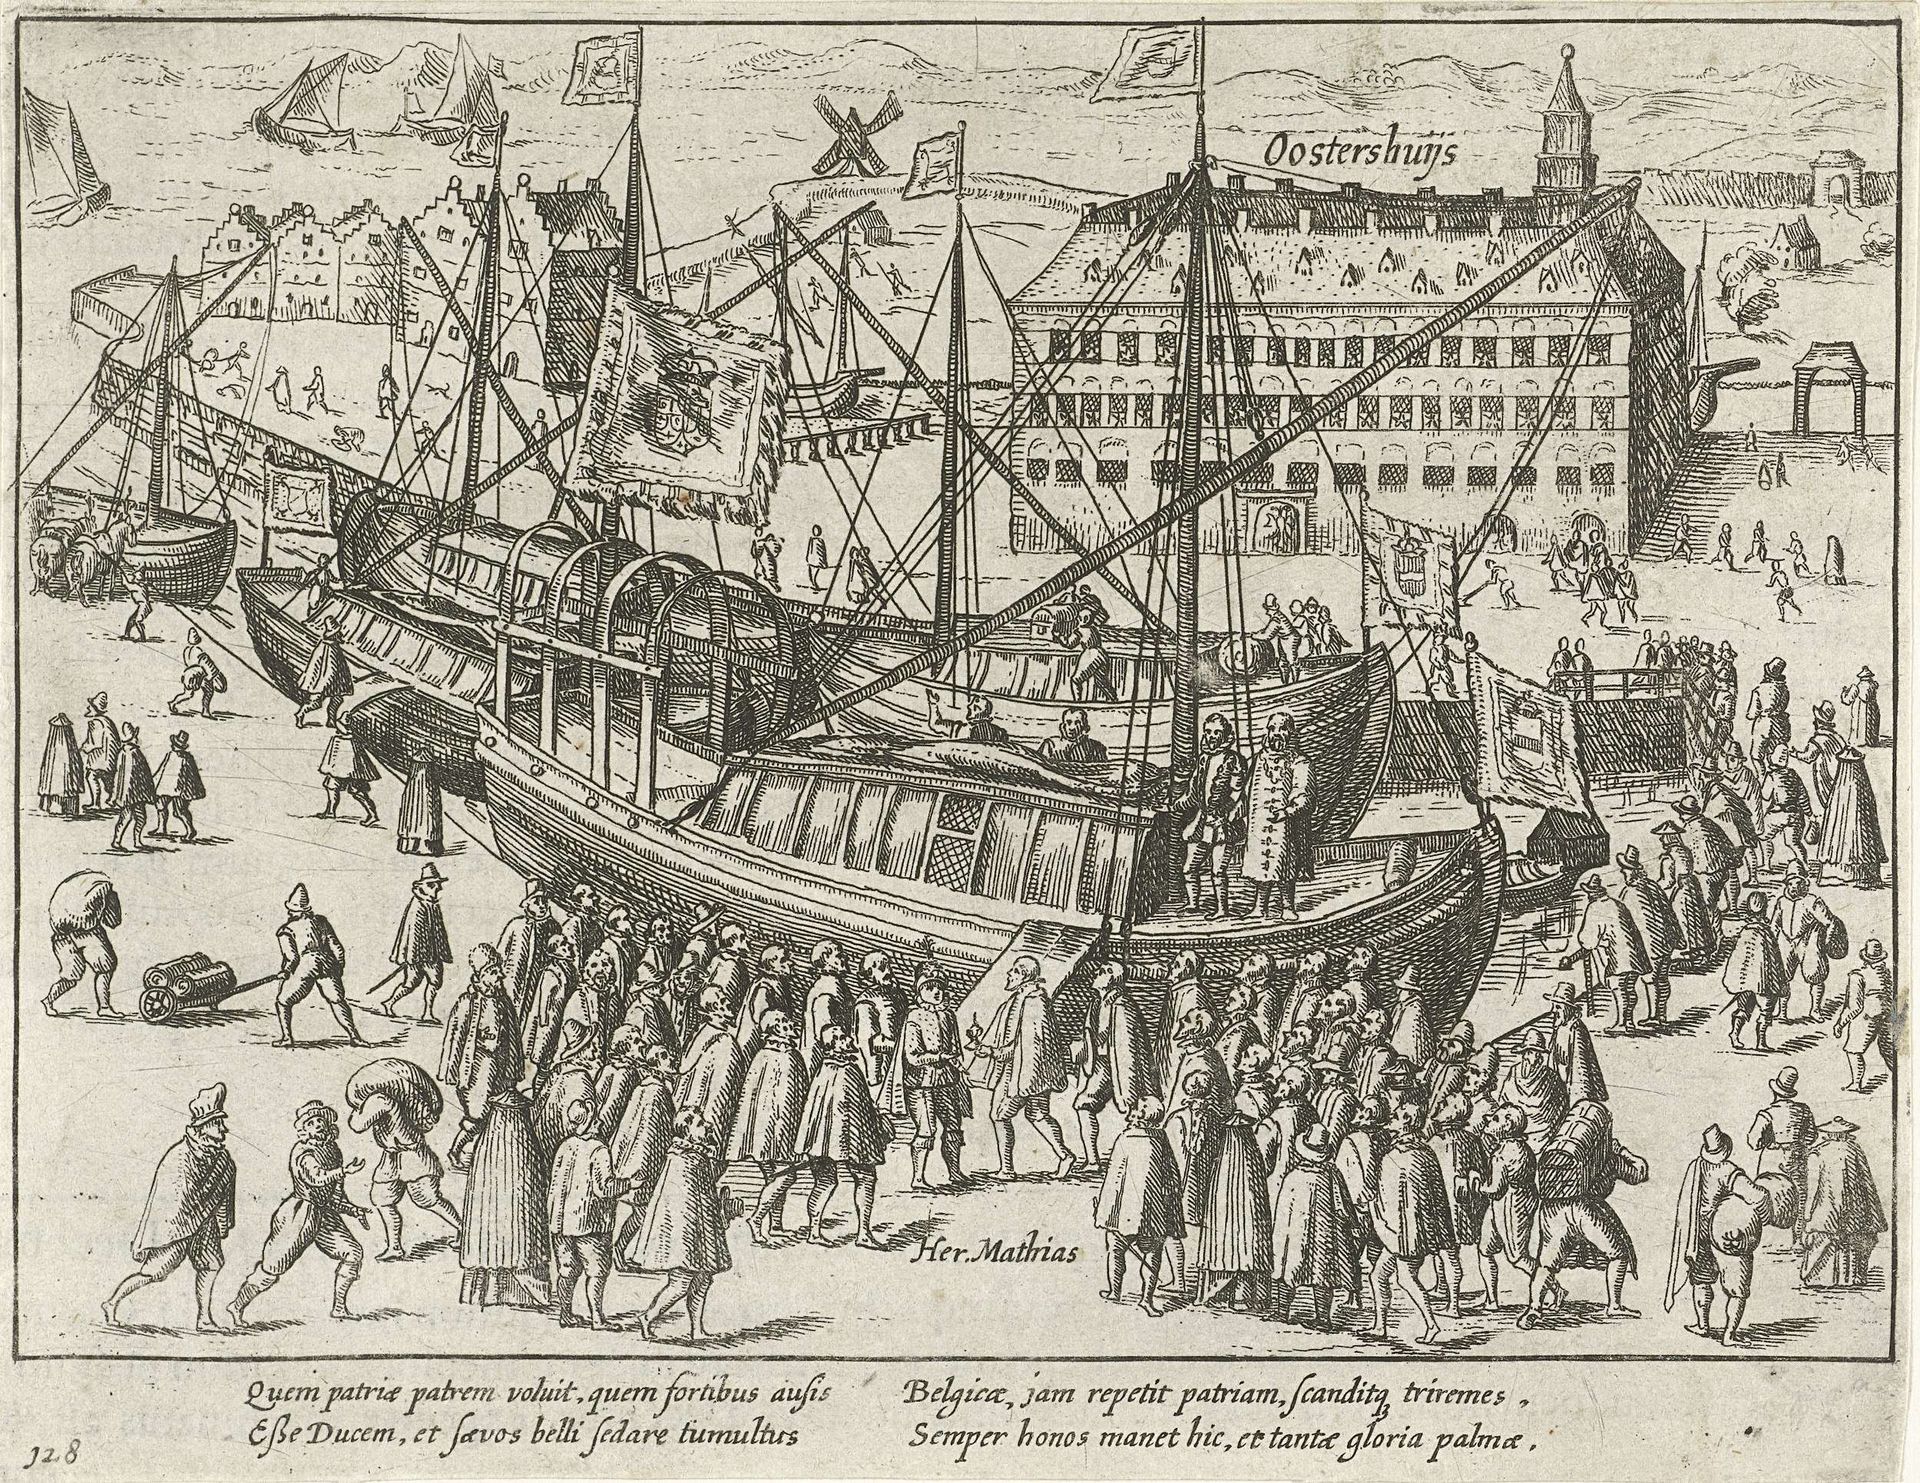 Oostershuÿs
Her. Mathias
Quem patriæ patrem voluit, quem fortibus ausis
Eſse Ducem, et ſævos belli ſedare tumultus
Belgicæ, jam repetit patriam, ſcanditqꝫ triremes,
Semper honos manet hic, et tantæ gloria palmæ.
128